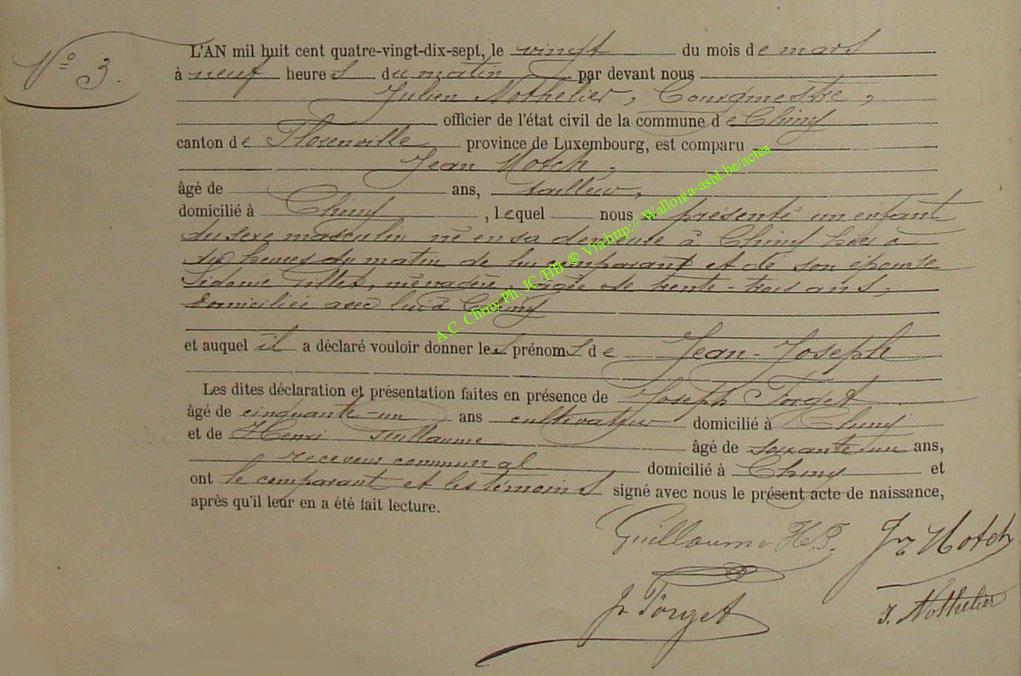 N° 3.
L'AN mil huit cent quatre-vingt-dix-sept, le vingt du mois de mars
à neuf heures du matin par devant nous
Julien Nothelier, Bourgmestre,
officier de l'état civil de la commune de Chiny
canton de Florenville province de Luxembourg, est comparu
Jean Hotch,
âgé de ans, tailleur,
domicilié à Chiny, lequel nous présenté un enfant
du sexe masculin né en sa demeure à Chiny hier à
six heures du matin de lui comparant et de son épouse
Sidonie Gillet, ménagère, âgée de trente-trois ans,
domiciliée avec lui à Chiny
et auquel il a déclaré vouloir donner les prénoms de Jean-Joseph
Les dites déclaration et présentation faites en présence de Joseph Forget
âgé de cinquante-un ans cultivateur domicilié à Chiny
et de Henri Guillaume âgé de soixante un ans,
receveur communal domicilié à Chiny et
ont le comparant et les témoins signé avec nous le présent acte de naissance,
après qu'il leur en a été fait lecture.
Guillaume H.J. Jn Hotch
Jh Forget J. Nothelier
A.C. Chiny Ph JC/HB ® Via http:// Wallonia-asbl.be/actes